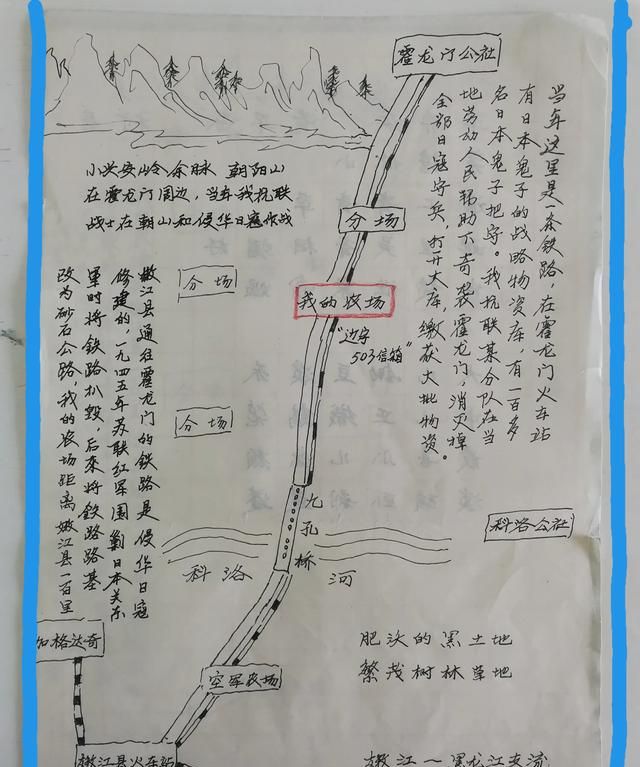 霍龙门公社
当年这里是一条铁路，在霍龙门火车站
有日本鬼子的战略物资库，有一百多
名日本鬼子把守。我抗联某分队在当
地劳动人民帮助下奇袭霍龙门，消灭掉
全部日寇守兵，打开大库，缴获大批物资。
小兴安岭余脉 朝阳山
在霍龙门周边，当年我抗联
战士在朝山和侵华日寇作战
分场
分场
我的农场
"边字
503信箱"
嫩江县通往霍龙门的铁路是侵华日寇
修建的，一九四五年苏联红军围剿日本关东
军时将铁路扒毁，后来将铁路路基
改为砂石公路，我的农场距离嫩江县一百里
分场
九孔桥
科洛公社
科洛 河
加格达奇
肥沃的黑土地
繁茂树林草地
空军农场
嫩江县火车站
嫩江一黑龙江支流